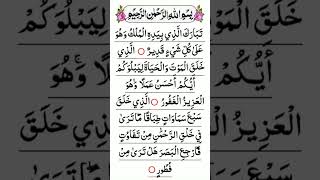 بِسْمِ اللهِ الرَّحْمٰنِ الرَّحِيْمِ
تَبَارَكَ الَّذِي بِيَدِهِ الْمُلْكُ وَهُوَ
عَلَىٰ كُلِّ شَيْءٍ قَدِيرٌ الَّذِي
خَلَقَ الْمَوْتَ وَالْحَيَاةَ لِيَبْلُوَكُمْ
أَيُّكُمْ أَحْسَنُ عَمَلًا وَهُوَ
الْعَزِيزُ الْغَفُورُ الَّذِي خَلَقَ
سَبْعَ سَمَاوَاتٍ طِبَاقًا مَّا تَرَىٰ
فِي خَلْقِ الرَّحْمَٰنِ مِنْ تَفَاوُتٍ
فَارْجِعِ الْبَصَرَ هَلْ تَرَىٰ مِنْ
فُطُورٍ